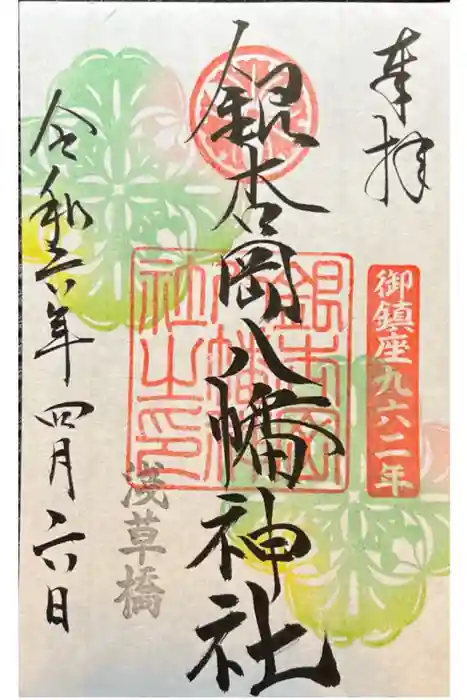 奉拝
御鎮座九六二年
銀杏岡八幡神社
銀杏岡八幡神社之印
浅草橋
令和六年四月二六日